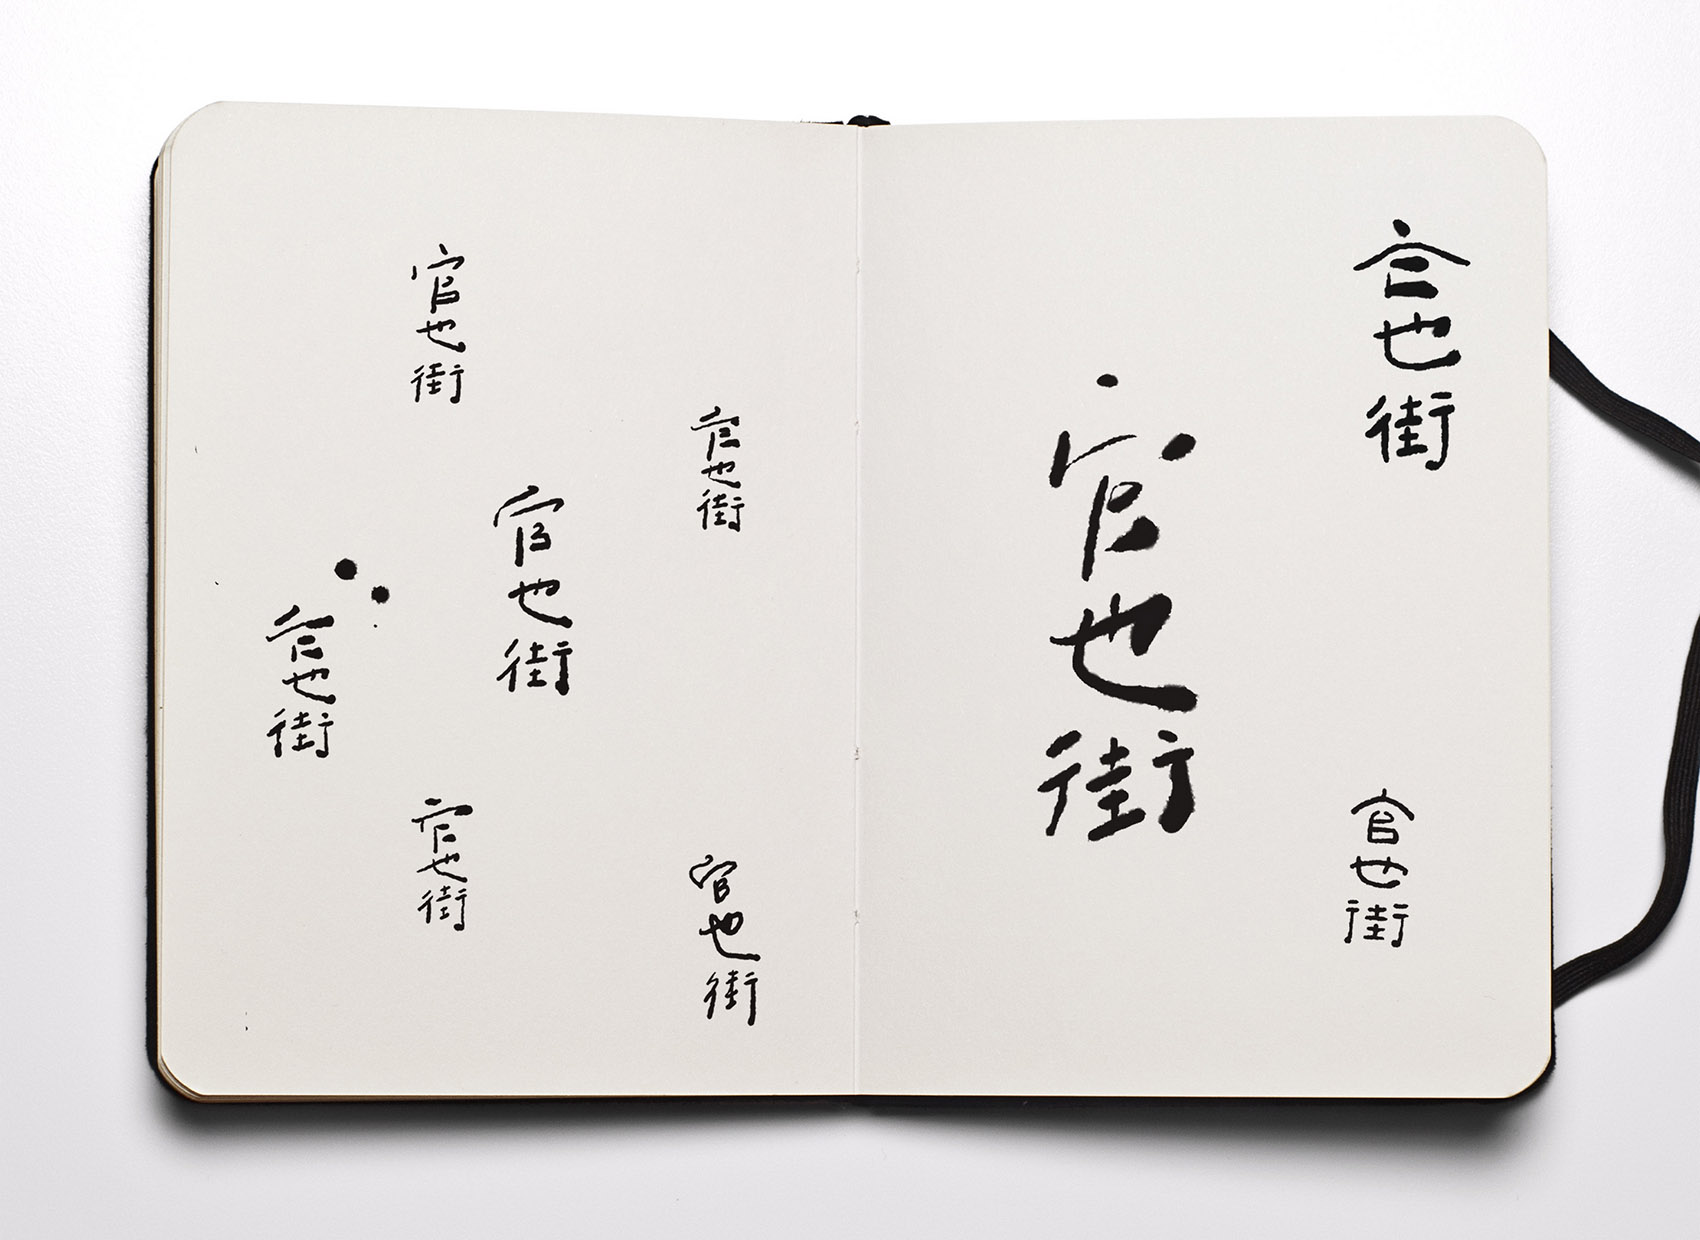 官也街
官也街
官也街
官也街
官也街
官也街
官也街
官也街
官也街